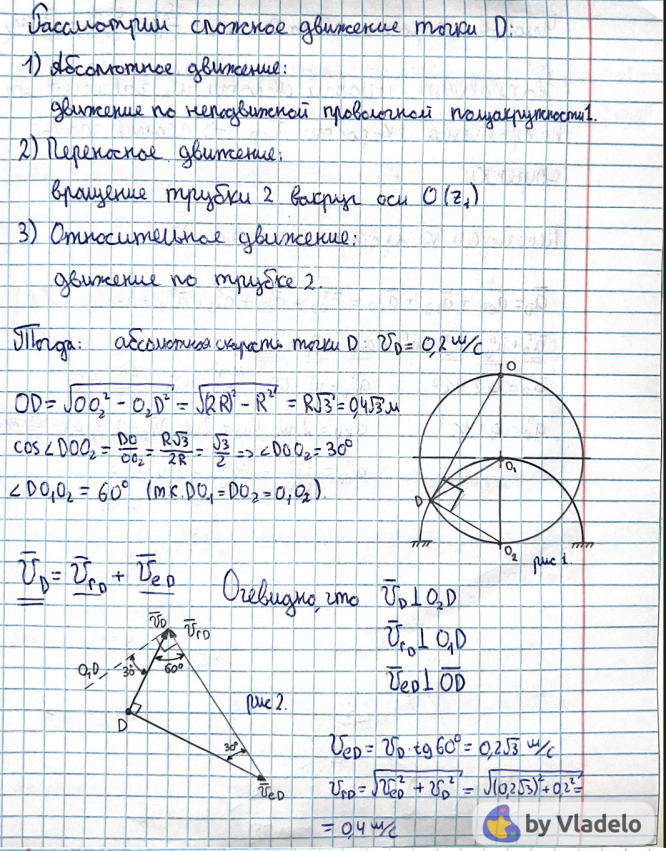 Рассмотрим сложное движение точки D:
1) Абсолютное движение:
движение по неподвижной проволочной полуокружности 1.
2) Переносное движение:
вращение трубки 2 вокруг оси O(z₁)
3) Относительное движение:
движение по трубке 2.
Тогда: абсолютная скорость точки D: V_D = 0,2 м/с
OD = √(OO₂² − O₂D²) = √((2R)² − R²) = R√3 = 0,4√3 м
cos∠DOO₂ = DO/OO₂ = R√3/2R = √3/2 => ∠DOO₂ = 30°
∠DO₁O₂ = 60° (т.к. DO₁ = DO₂ = O₁O₂).
O
O₁
D
O₂
рис 1.
V̄_D = V̄_rD + V̄_eD
Очевидно, что V̄_D ⊥ O₂D
V̄_rD ⊥ O₁D
V̄_eD ⊥ OD
V̄_D V̄_rD
O₁D
30°
60°
D
30°
V̄_eD
рис 2.
V_eD = V_D · tg 60° = 0,2√3 м/с
V_rD = √(V_eD² + V_D²) = √((0,2√3)² + 0,2²) =
= 0,4 м/с
by Vladelo